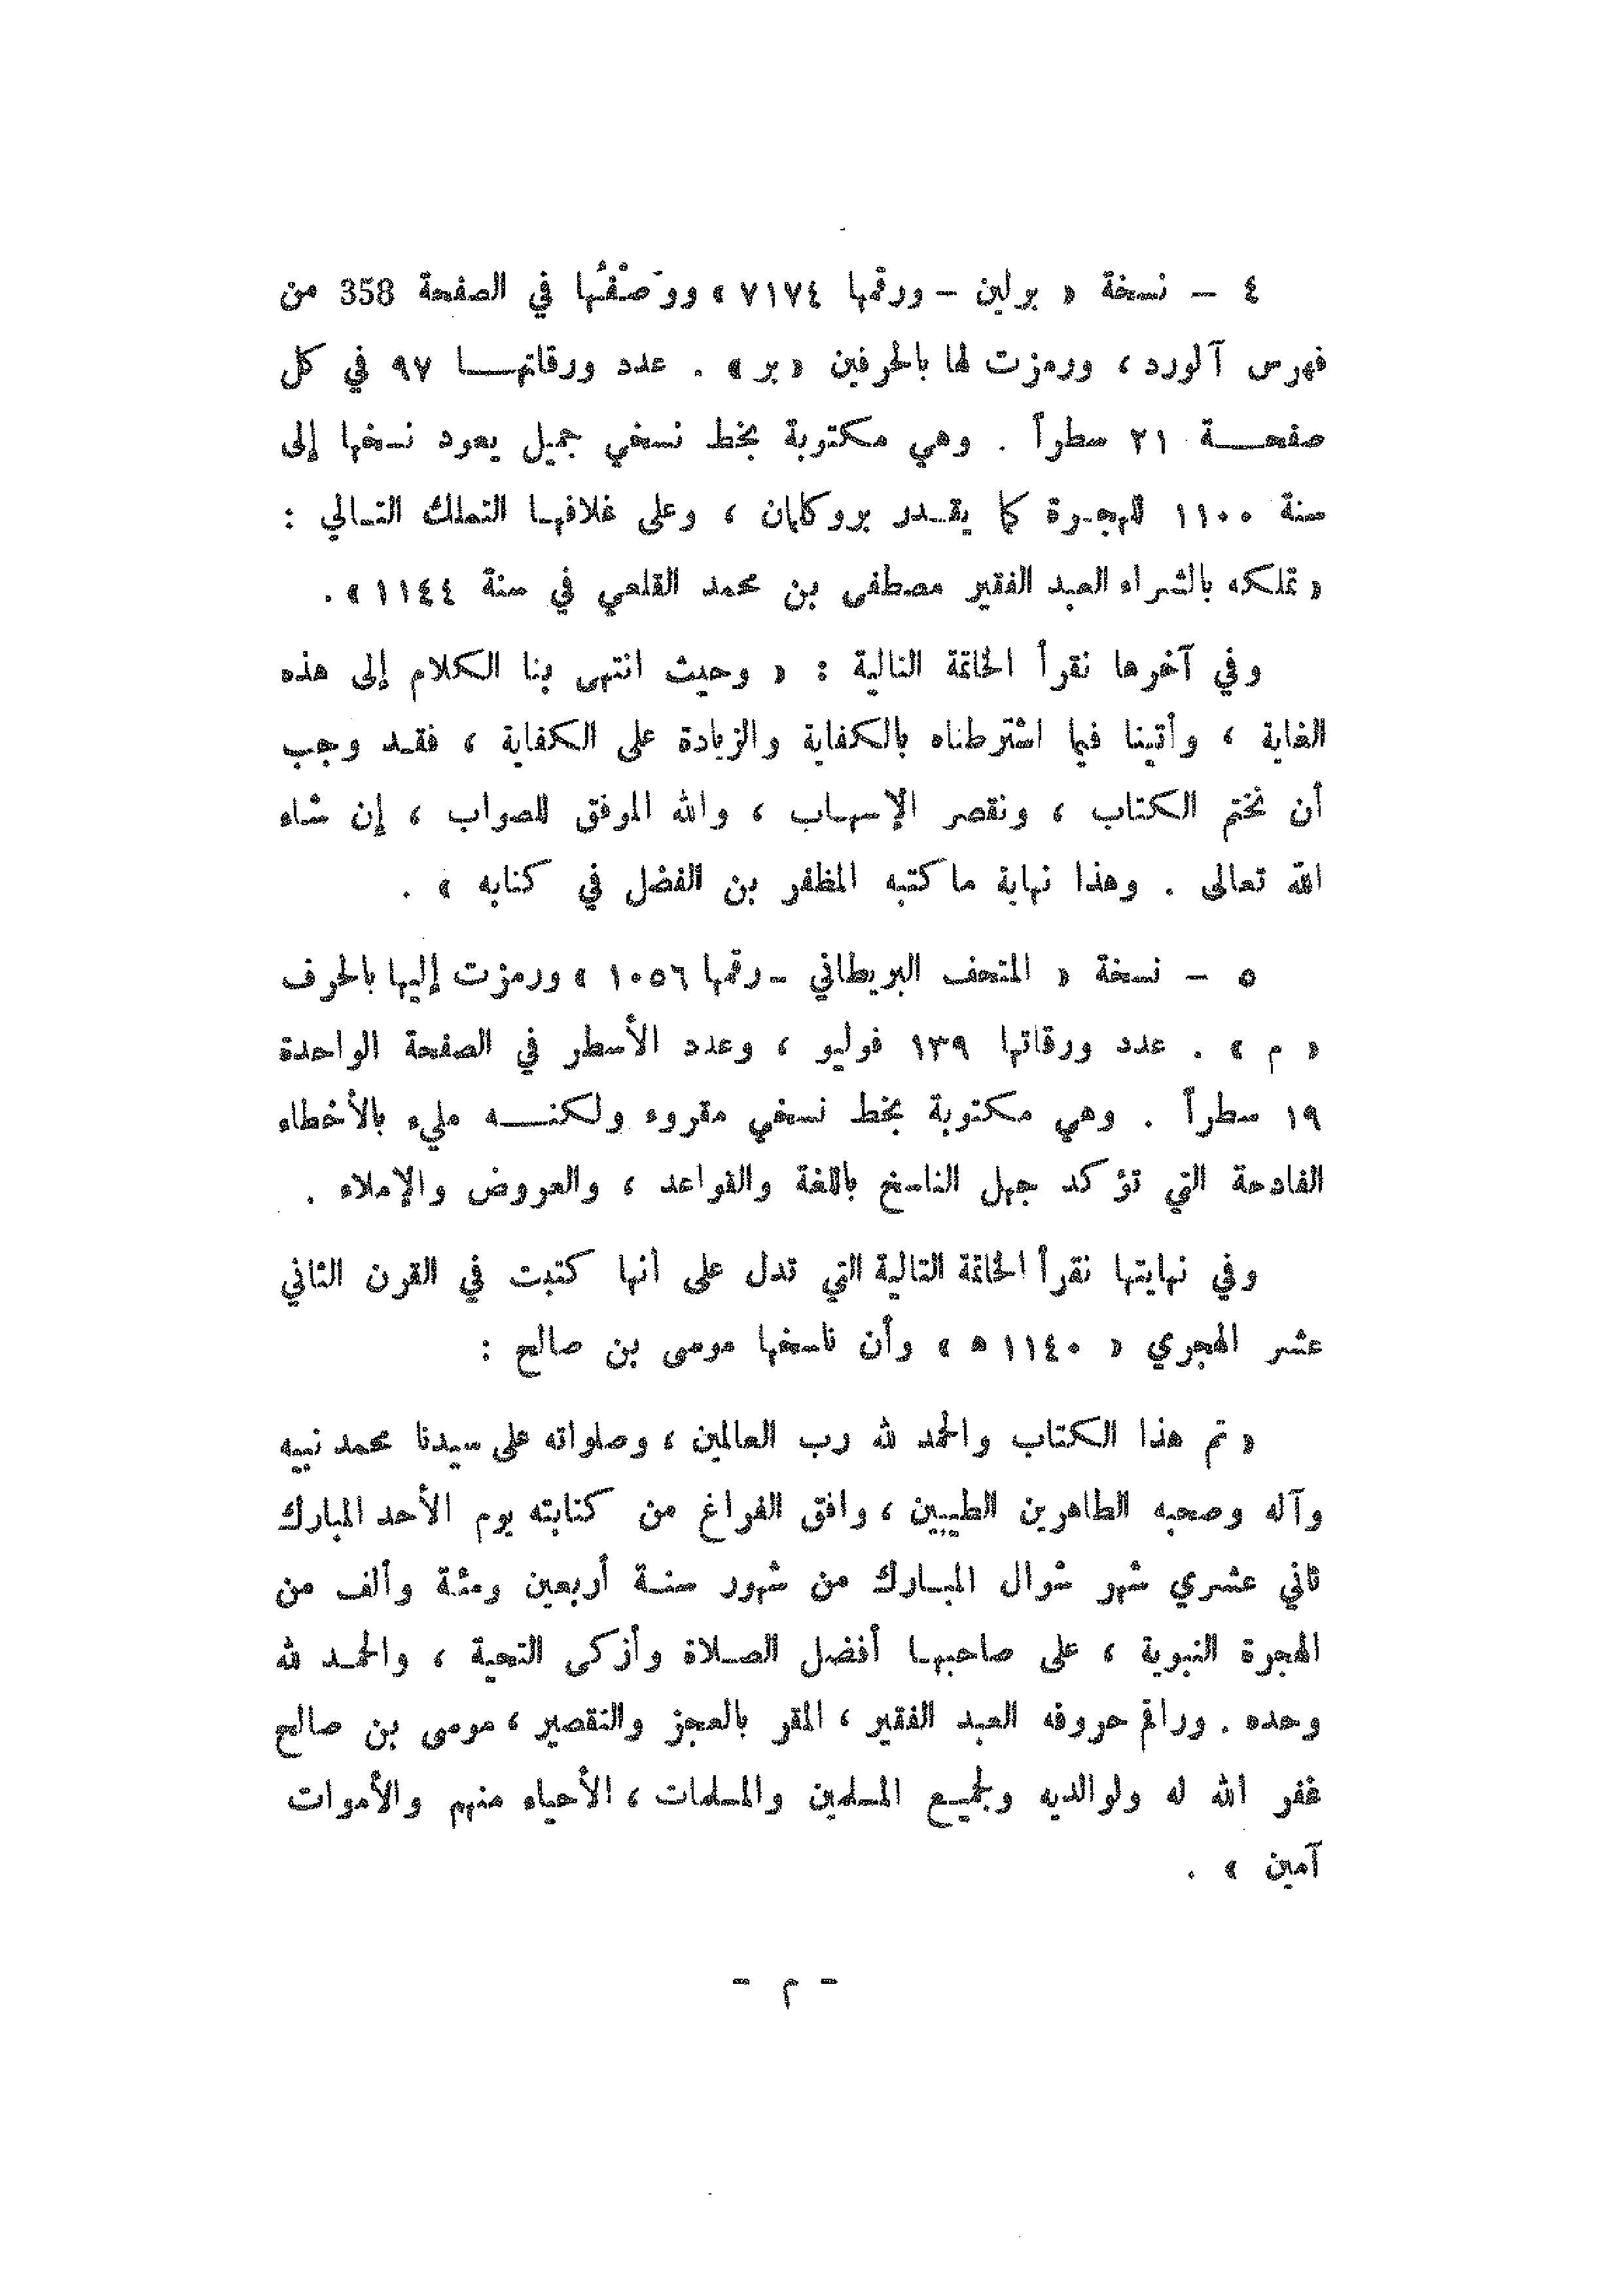 ٤ – نسخة « برلين – ورقمها ٧١٧٤ » ووَصْفُها في الصفحة 358 من
فهرس آلورد ، ورمزت لها بالحرفين « بر » . عدد ورقاتهـــا ٩٧ في كل
صفحـــة ٢١ سطراً . وهي مكتوبة بخط نسخي جميل يعود نسخها إلى
سنة ١١٠٠ للهجرة كما يقدر بروكلمان ، وعلى غلافها التملك التالي :
« تملكه بالشراء العبد الفقير مصطفى بن محمد القلعي في سنة ١١٤٤ » .
وفي آخرها نقرأ الخاتمة التالية : « وحيث انتهى بنا الكلام إلى هذه
الغاية ، وأتينا فيما اشترطناه بالكفاية والزيادة على الكفاية ، فقد وجب
أن نختم الكتاب ، ونقصر الإسهاب ، والله الموفق للصواب ، إن شاء
الله تعالى . وهذا نهاية ما كتبه المظفر بن الفضل في كتابه » .
٥ – نسخة « المتحف البريطاني – رقمها ١٠٥٦ » ورمزت إليها بالحرف
« م » . عدد ورقاتها ١٣٩ فوليو ، وعدد الأسطر في الصفحة الواحدة
١٩ سطراً . وهي مكتوبة بخط نسخي مقروء ولكنـــه مليء بالأخطاء
الفادحة التي تؤكد جهل الناسخ باللغة والقواعد ، والعروض والإملاء .
وفي نهايتها نقرأ الخاتمة التالية التي تدل على أنها كتبت في القرن الثاني
عشر الهجري « ١١٤٠ ه » وأن ناسخها موسى بن صالح :
« تم هذا الكتاب والحمد لله رب العالمين ، وصلواته على سيدنا محمد نبيه
وآله وصحبه الطاهرين الطيبين ، وافق الفراغ من كتابته يوم الأحد المبارك
ثاني عشري شهر شوال المبارك من شهور سنة أربعين ومئة وألف من
الهجرة النبوية ، على صاحبها أفضل الصلاة وأزكى التحية ، والحمد لله
وحده . وراقم حروفه العبد الفقير ، المقر بالعجز والتقصير ، موسى بن صالح
غفر الله له ولوالديه ولجميع المسلمين والمسلمات ، الأحياء منهم والأموات
آمين » .
- م -